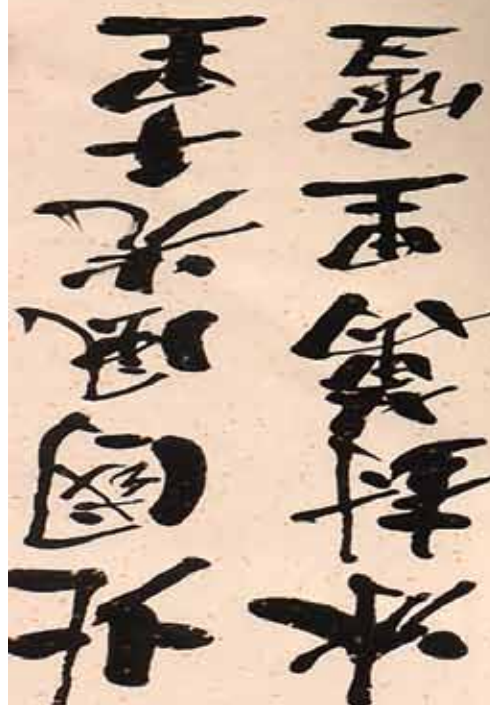 北國風光千里
冰封萬里雪